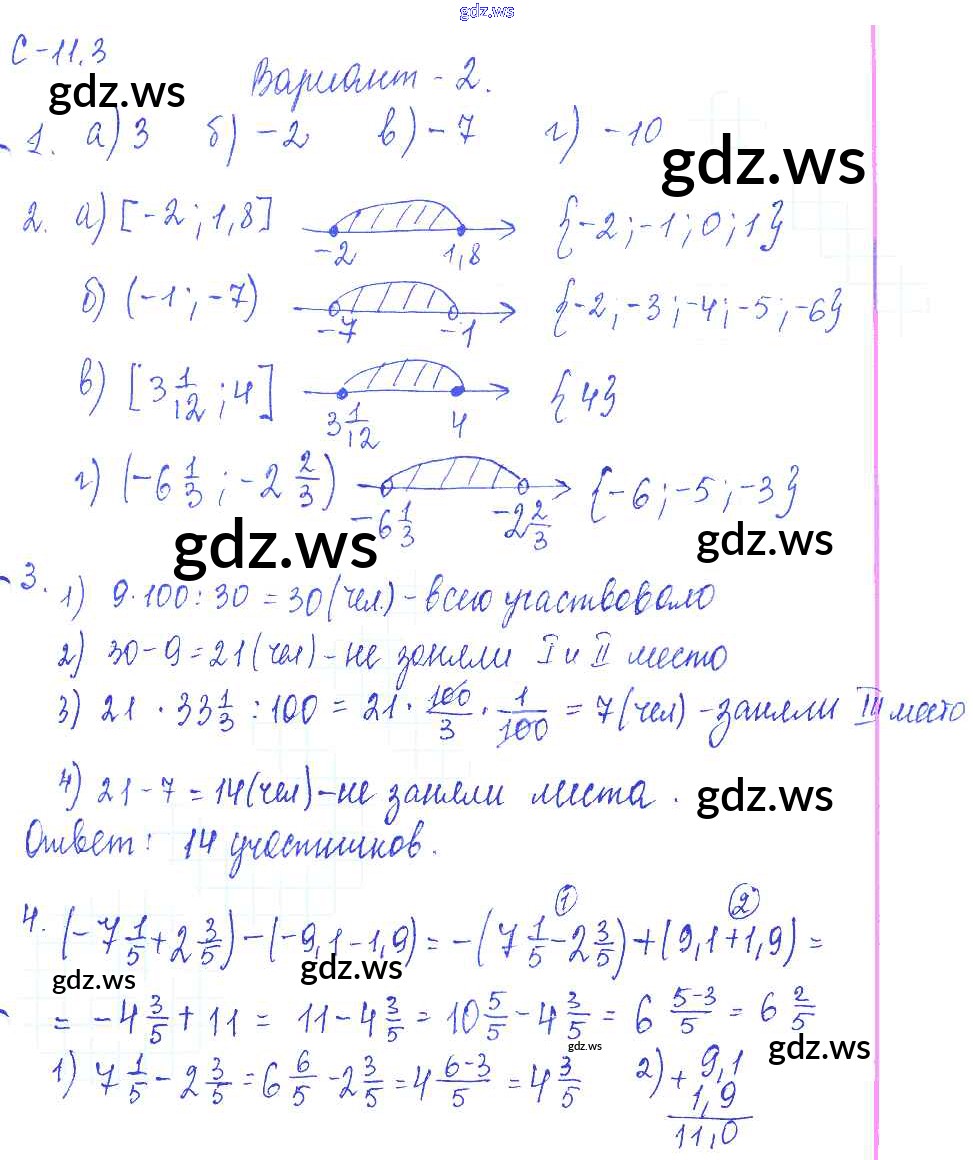 gdz.ws
С-11.3
gdz.ws
Вариант-2.
1. а) 3 б) -2 в) -7 г) -10
gdz.ws
2. а) [-2; 1,8] -2 1,8 {-2; -1; 0; 1}
б) (-1; -7) -7 -1 {-2; -3; -4; -5; -6}
в) [3 1/12; 4] 3 1/12 4 {4}
г) (-6 1/3; -2 2/3) -6 1/3 -2 2/3 {-6; -5; -3}
gdz.ws gdz.ws
3. 1) 9·100:30 = 30 (чел) - всего участвовало
2) 30-9=21 (чел) - не заняли I и II место
3) 21 · 33 1/3 : 100 = 21 · 100/3 · 1/100 = 7 (чел) - заняли III место
4) 21-7 = 14 (чел) - не заняли места.
gdz.ws
Ответ: 14 участников.
4. (-7 1/5 + 2 3/5) - (-9,1-1,9) = -(7 1/5 - 2 3/5) + (9,1+1,9) =
1 2
gdz.ws gdz.ws
= -4 3/5 + 11 = 11 - 4 3/5 = 10 5/5 - 4 3/5 = 6 5-3/5 = 6 2/5
gdz.ws gdz.ws
1) 7 1/5 - 2 3/5 = 6 6/5 - 2 3/5 = 4 6-3/5 = 4 3/5 2) + 9,1
1,9
11,0